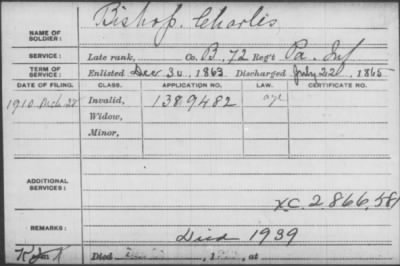 Bishop. Charles
NAME OF SOLDIER:
SERVICE: Late rank, Co. B, 72 Reg't Pa. Inf
TERM OF SERVICE: Enlisted Dec 30, 1863, Discharged July 22, 1865
DATE OF FILING. CLASS. APPLICATION NO. LAW. CERTIFICATE NO.
1910 Mch 28 Invalid, 1389482 age
Widow,
Minor,
ADDITIONAL SERVICES:
XC. 2,866,581
REMARKS: Died 1939
Died , 1 , at